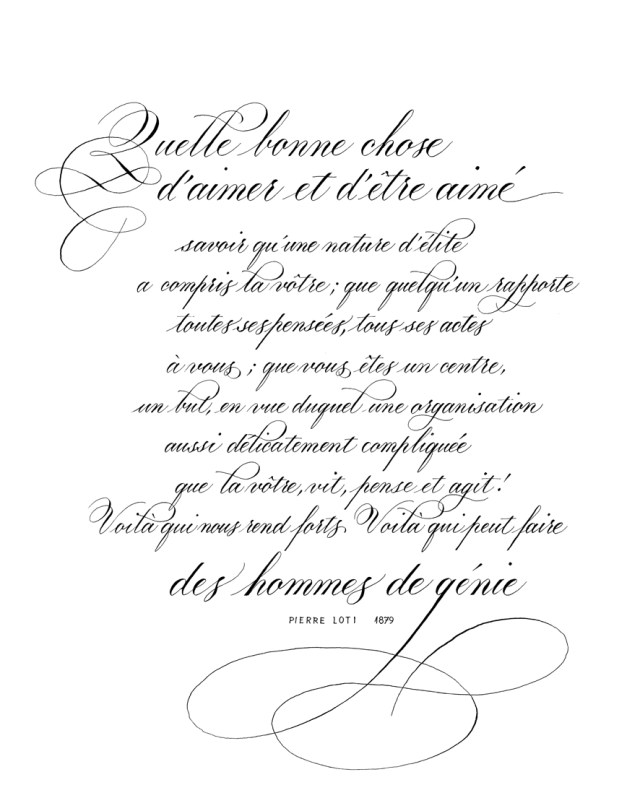 Quelle bonne chose
d'aimer et d'être aimé
savoir qu'une nature d'élite
a compris la vôtre ; que quelqu'un rapporte
toutes ses pensées, tous ses actes
à vous ; que vous êtes un centre,
un but, en vue duquel une organisation
aussi délicatement compliquée
que la vôtre, vit, pense et agit !
Voilà qui nous rend forts. Voilà qui peut faire
des hommes de génie
PIERRE LOTI 1879